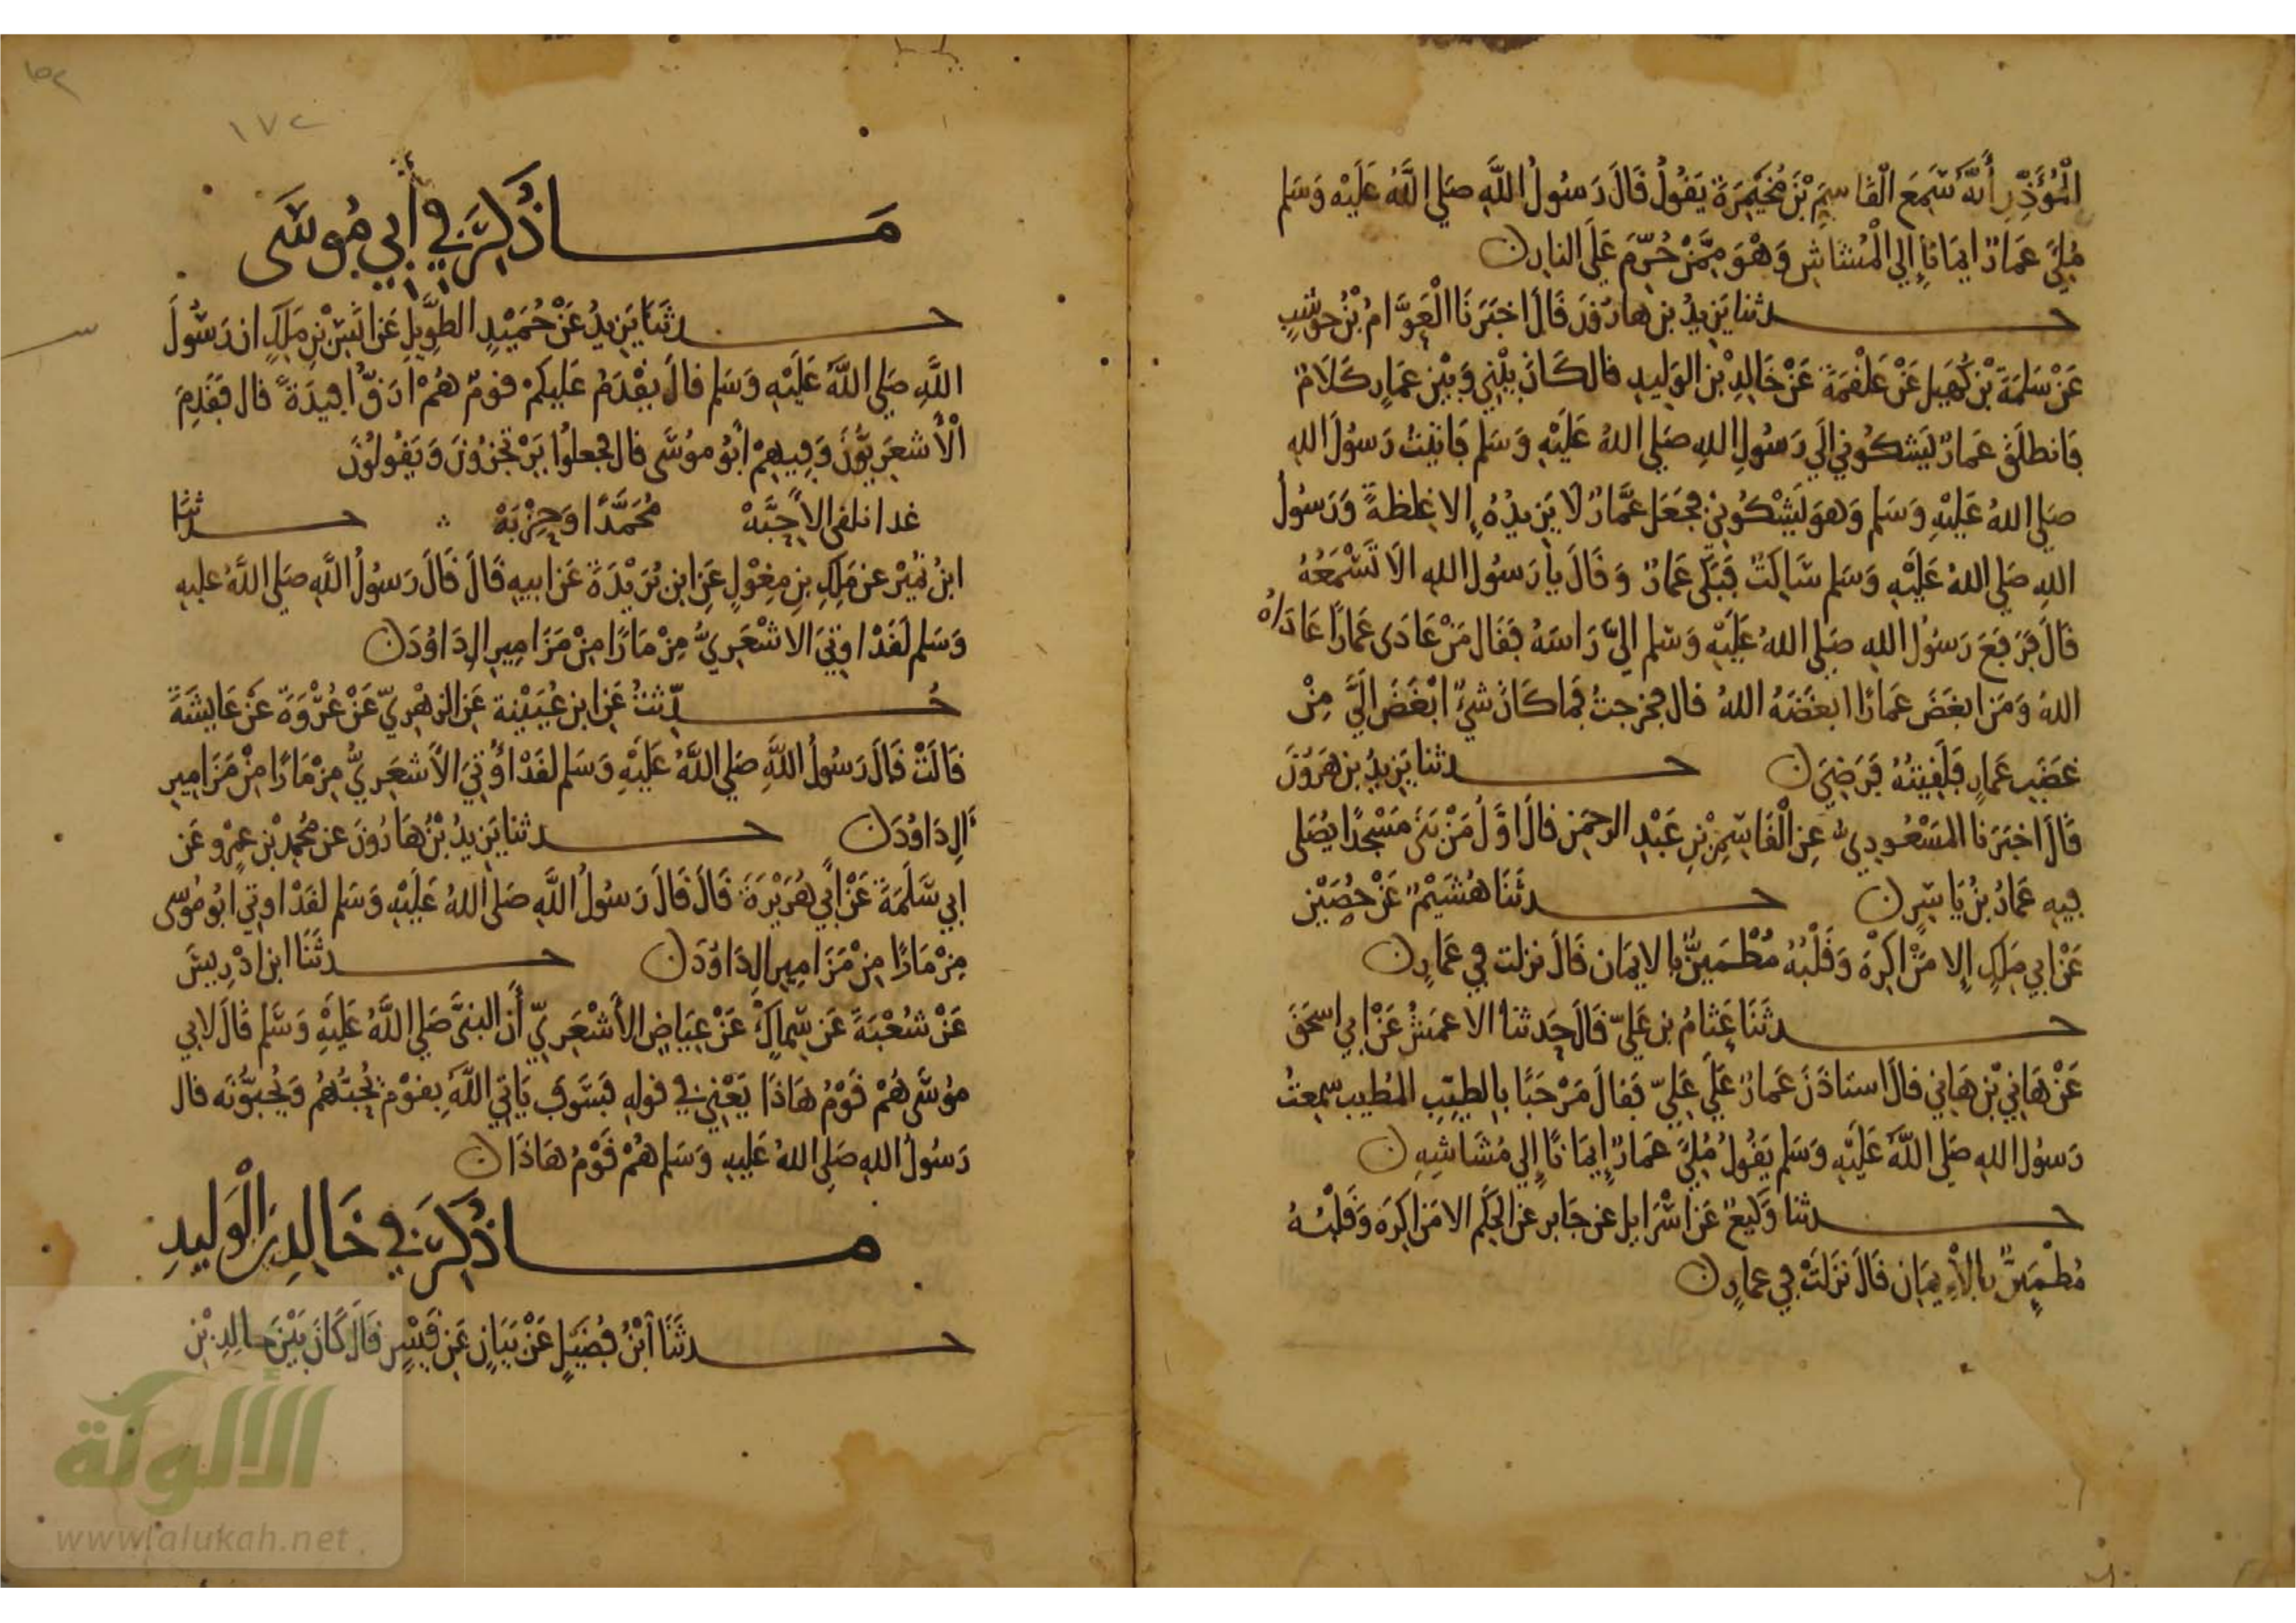 الْمُؤَذِّنِ أَنَّهُ سَمِعَ الْقَاسِمَ بْنَ مُخَيْمِرَةَ يَقُولُ قَالَ رَسُولُ اللَّهِ صَلى اللَّهُ عَلَيْهِ وَسَلم
مُلِئَ عَمَارٌ ايمَانًا إِلي الْمُشَاشِ وَهْوَ مِمَّنْ حُرِّمَ عَلَى النارِ ن
حدثنا يَزِيدُ بن هَارُونَ قَالَ اخبَرَنَا الْعَوَّامُ بْنُ حَوشَبٍ
عَنْ سَلمَةَ بْنِ كُهَيلٍ عَنْ عَلْقَمَةَ عَنْ خَالِدِ بْنِ الوَلِيدِ قال كَانَ بَيْنِي وَبَيْنَ عَمَارٍ كَلَامٌ
فَانطلَقَ عَمَارٌ يَشكُونِي إلَي رَسُولِ اللهِ صَلي اللهُ عَلَيْهِ وَسَلم فَاتَيْتُ رَسُولَ اللهِ
صَلي اللهُ عَلَيْهِ وَسَلم وَهوَ يَشْكُونِي فجَعَلَ عَمَّارٌ لَا يَزِيدُهُ إِلا غِلظَةً وَرَسُولُ
اللهِ صَلي اللهُ عَلَيْهِ وَسَلم سَاكِتٌ فَبَكَى عَمَارٌ وَقَالَ يا رَسُولَ اللهِ الَا تَسْمَعُهُ
قَالَ فَرَفَعَ رَسُولُ اللهِ صَلي اللهُ عَلَيْهِ وَسَلم اليَّ رَاسَهُ فَقَال مَنْ عَادَى عَمَارًا عَادَاهُ
اللهُ وَمَن ابغَضَ عَمَارًا ابغَضَهُ اللهُ قال فخرجتُ فَمَا كَانَ شَيْءٌ ابْغَضَ الَيَّ مِنْ
غَضَبِ عَمَارٍ فَلَقِيتهُ فَرَضِيَ ن حدثنا يَزِيدُ بن هَرُونَ
قَالَ اخبَرَنا المَسْعُودِيُّ عنِ الْقَاسِمِ بْنِ عَبْدِ الرحمَنِ قالَ اوَّلُ مَنْ بَنَى مَسْجدًا يُصَلى
فِيهِ عَمَارُ بنُ يَاسِرٍ ن حدثَنَا هُشَيْمٌ عَنْ حُصَيْنٍ
عَنْ ابي مَلِكٍ إِلا مَنْ اكْرِهَ وَقَلْبُهُ مُطْمَئِنٌّ بِالايمَانِ قَالَ نزلت في عَمَارٍ ن
حدثَنَا عَثامُ بن عَليّ قَالَ حَدثنا الاعمَشُ عَنْ ابي اسحَقَ
عَنْ هَانِئِ بْنِ هَانِئ قالَ استَاذَنَ عَمَارٌ عَلَى عَلِيّ فَقالَ مَرْحَبًا بِالطيِّبِ المُطَيب سمِعتُ
رَسُولَ اللهِ صَلي اللَّهُ عَلَيْهِ وَسَلم يَقُولُ مُلِئَ عَمَارٌ إِيمَانًا إِلي مُشَاشِهِ ن
حدثنا وَكِيعٌ عَن اسْرَائيل عن جَابر عن الحَكَمِ الا مَن اكرِهَ وَقَلْبُهُ
مُطْمَئِنٌّ بِالْإِيمَانِ قَالَ نَزَلَتْ في عمارٍ ن
١٧٢
مَا ذُكِرَ فِي أَبِي مُوسَى
حدثَنَا يَزِيدُ عَنْ حُمَيْدٍ الطوِيلِ عَن انَسِ بْنِ مَلِكٍ ان رَسُولَ
اللَّهِ صَلي اللَّهُ عَلَيْهِ وَسَلم قالَ يقْدَمُ عَلَيكمْ قومٌ هُمْ ارَقُّ افِيدَةً قال فَقَدِمَ
الْأَشعَرِيُّونَ وَفِيهِمْ ابُو مُوسَى قال فجعلُوا يَرْتجزُونَ وَيَقُولُونَ
غدا نلقى الاحِبَّهْ محَمَّدًا وَحِزْبَهْ حدثَنَا
ابنُ نُمَيْر عن مَلِكِ بنِ مِغوَلٍ عَنِ ابنِ بُرَيْدَةَ عَن ابيهِ قَالَ قَالَ رَسُولُ اللَّهِ صَلي اللَّهُ عليهِ
وَسَلم لَقَدْ اوتِيَ الاشْعَرِيُّ مِزْمَارًا مِنْ مَزَامِيرِ الِ دَاوُدَ ن
حُدِّثتُ عَن ابن عُيَيْنة عَن الزهْرِيِّ عَنْ عُرْوَةَ عَنْ عَايشَةَ
قَالَتْ قَالَ رَسُولُ اللَّهِ صَلي اللَّهُ عَلَيْهِ وَسَلم لَقَدْ اوُتيَ الاشعَرِيُّ مِزْمَارًا مِنْ مَزَامِيرِ
الِ دَاوُدَ ن حدثنا يَزِيدُ بْنُ هَارُونَ عن مُحَمدِ بْنِ عَمْرٍو عَن
ابي سَلَمَةَ عَنْ ابي هُرَيْرَةَ قَالَ قَالَ رَسُولُ اللَّهِ صَلى اللهُ عَلَيْهِ وَسَلم لقَدْ اوتِيَ ابُو مُوسَى
مِزْمَارًا مِنْ مَزَامِيرِ الِ دَاوُدَ ن حدثَنَا ابن ادْرِيسَ
عَنْ شُعْبَةَ عَن سِمَاكٍ عَنْ عِيَاضٍ الأَشْعَرِيِّ أَن النبيَّ صَلي اللَّهُ عَلَيْهِ وَسَلم قَالَ لابي
مُوسَى هُمْ قَوْمُ هَاذَا يَعْنِي في قولهِ فَسَوفَ يَاتِي اللَّهُ بِقوْمٍ يُحِبُّهُمْ وَيُحِبُّونَه قال
رَسُولُ اللهِ صَلي اللهُ عَليهِ وَسَلم هُمْ قَوْمُ هَاذَا ن
ما ذُكِرَ في خَالِدِ بنِ الْوَلِيدِ
حدثَنَا ابْنُ فُضَيْلٍ عَنْ بَيَانٍ عَن قَيْسٍ قَالَ كَانَ بَيْنَ خالِدِ بْنِ
الألوكة
www.alukah.net